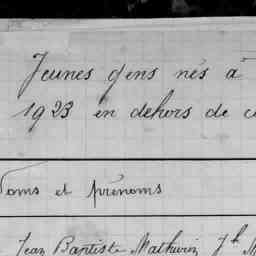 Jeunes gens nés à
1923 en dehors de c
Noms et prénoms
Jean Baptiste Mathurin Jh M